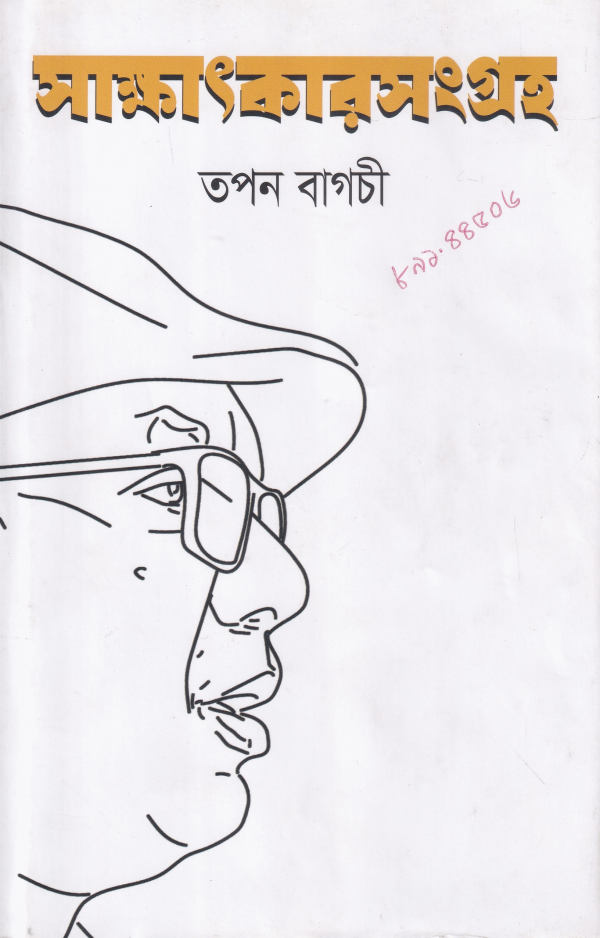 সাক্ষাৎকারসংগ্রহ
তপন বাগচী
৮৯১.৪৪৫০৬